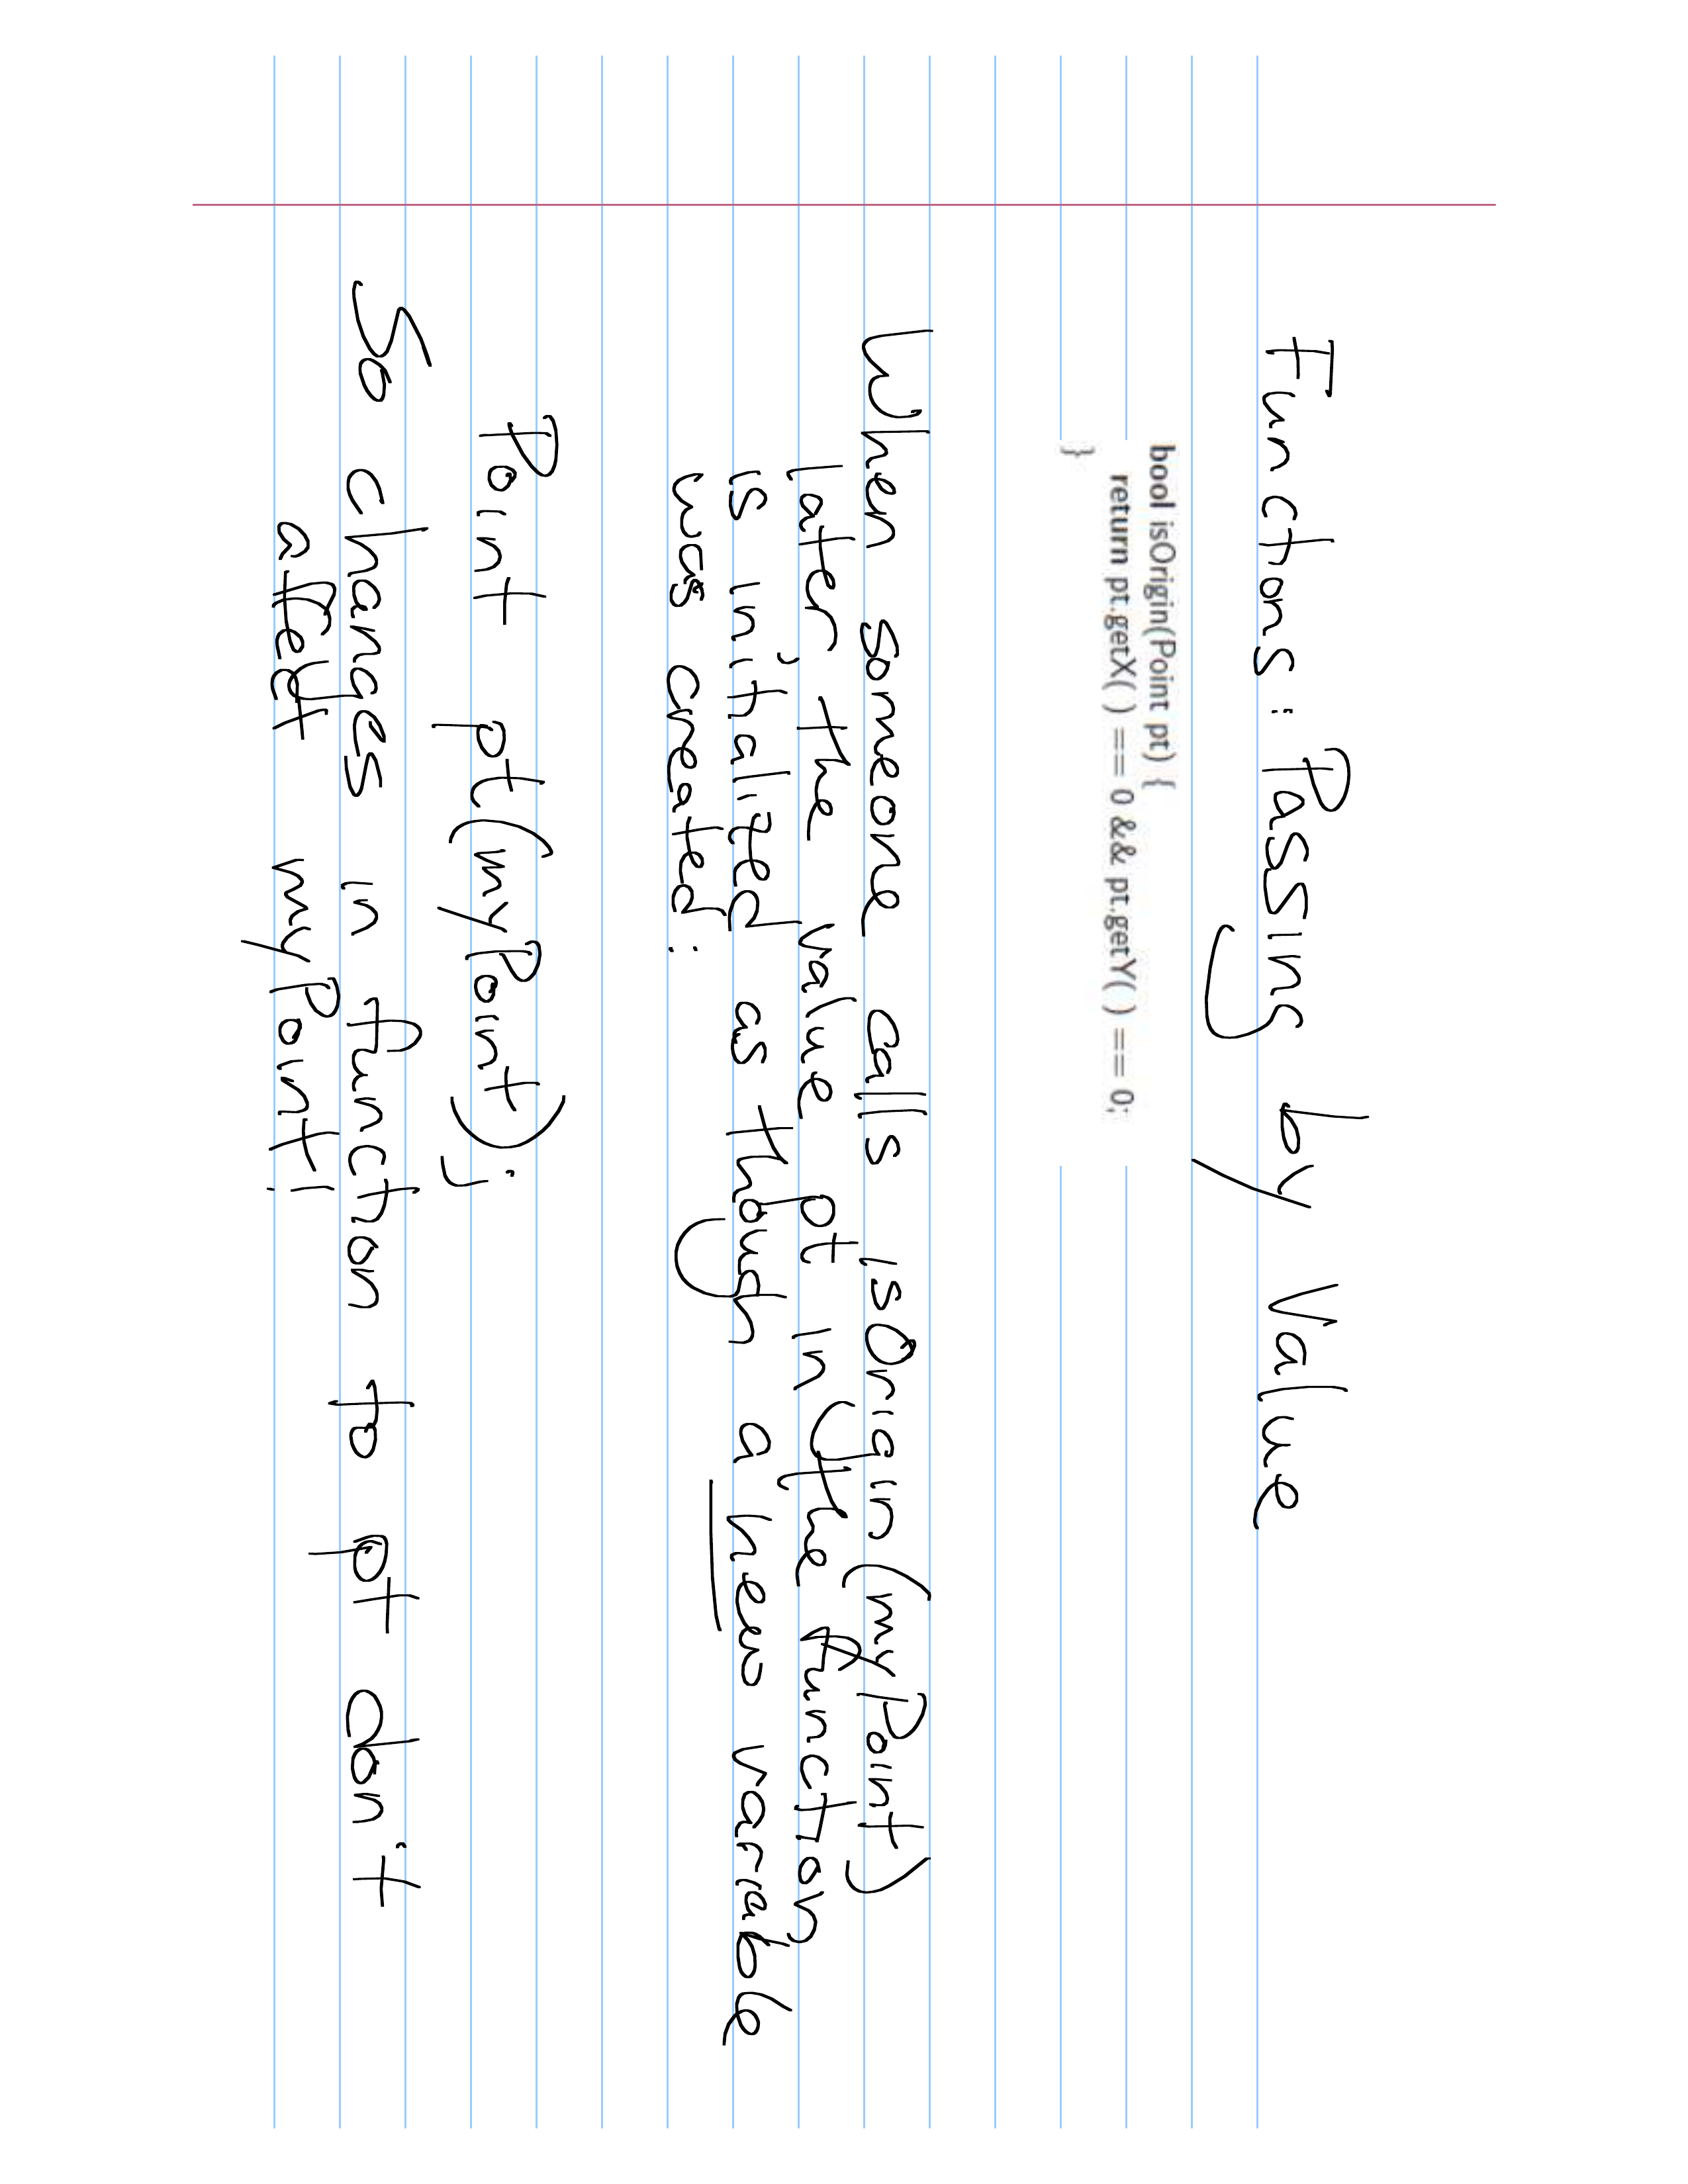 Functions: Passing by Value
bool isOrigin(Point pt) {
return pt.getX( ) == 0 && pt.getY( ) == 0;
}
When someone calls isOrigin(myPoint)
later, the value pt in the function,
is initialized as though a new variable
was created:
Point pt(myPoint);
So changes in function to pt don't
affect myPoint!